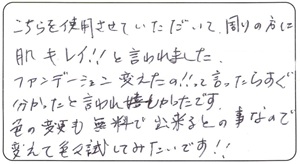 こちらを使用させていただいて、周りの方に
肌キレイ!!と言われました。
ファンデーション変えたの!!って言ったらすぐ
分かったと言われ嬉しかったです。
色の変更も無料で出来るとの事なので
変えて色々試してみたいです!!